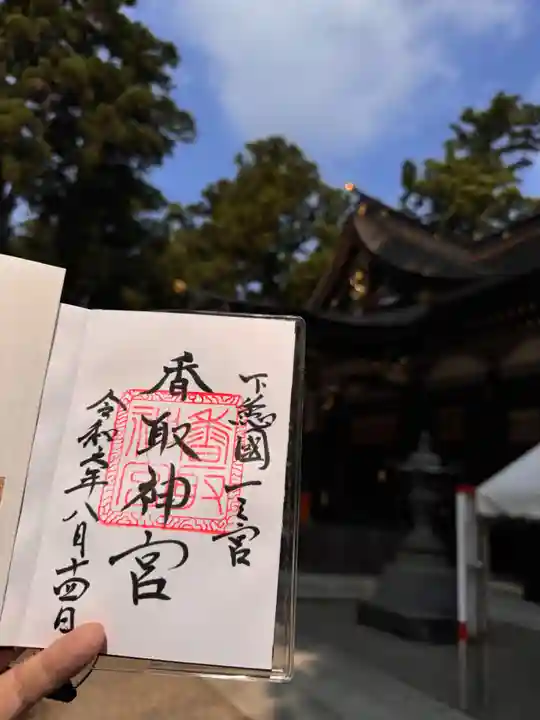 下総國一之宮
香取神宮
令和六年八月十四日
香取神宮